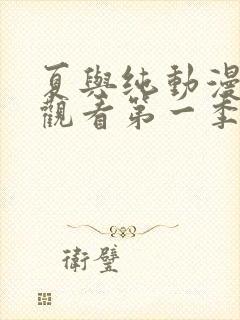 夏與純動漫
觀看第一季
衛璧